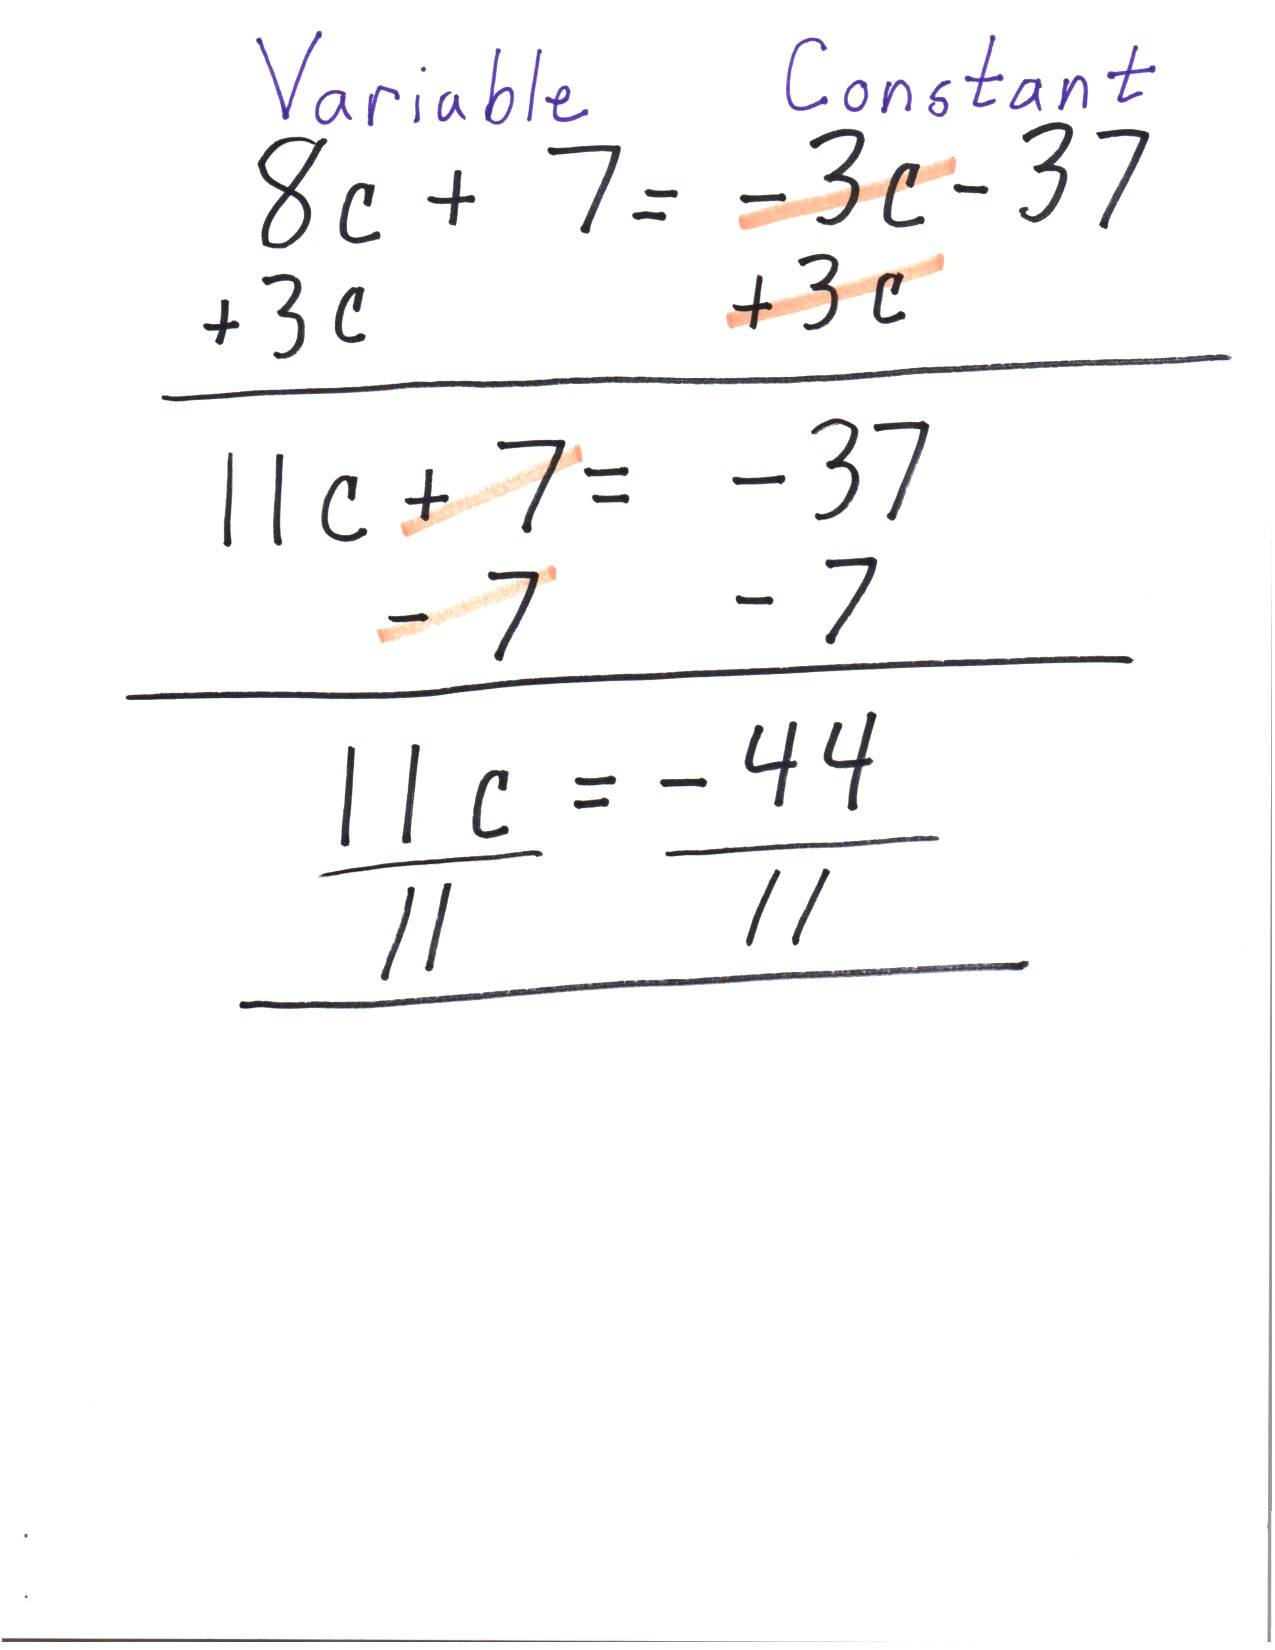 Variable Constant
8c + 7 = -3c - 37
+3c +3c
11c + 7 = -37
- 7 - 7
11c = -44
11 11